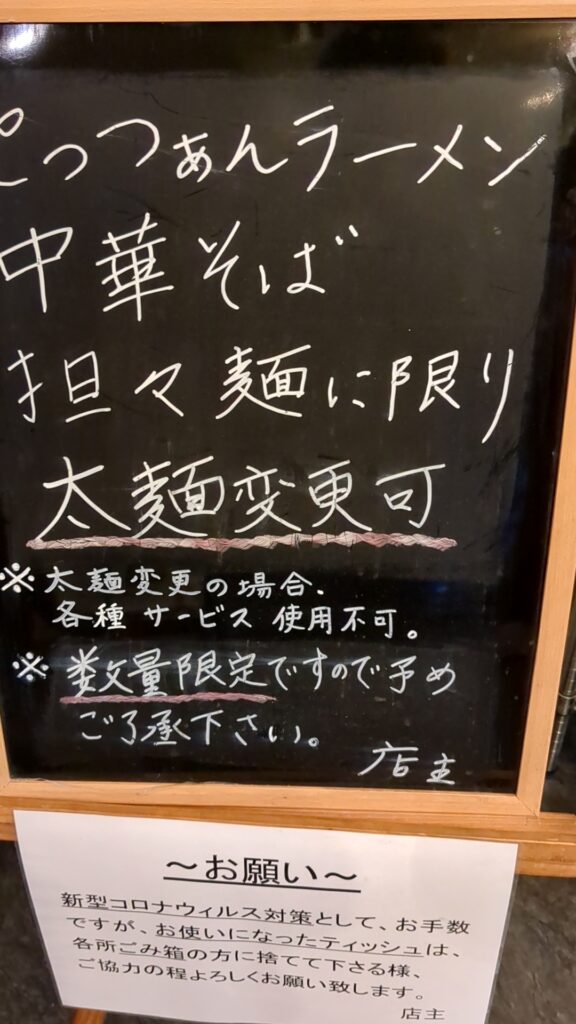 とっつぁんラーメン
中華そば
担々麺に限り
太麺変更可
※太麺変更の場合、
各種サービス使用不可。
※数量限定ですので予め
ご了承下さい。
店主
～お願い～
新型コロナウィルス対策として、お手数
ですが、お使いになったティッシュは、
各所ごみ箱の方に捨てて下さる様、
ご協力の程よろしくお願い致します。
店主